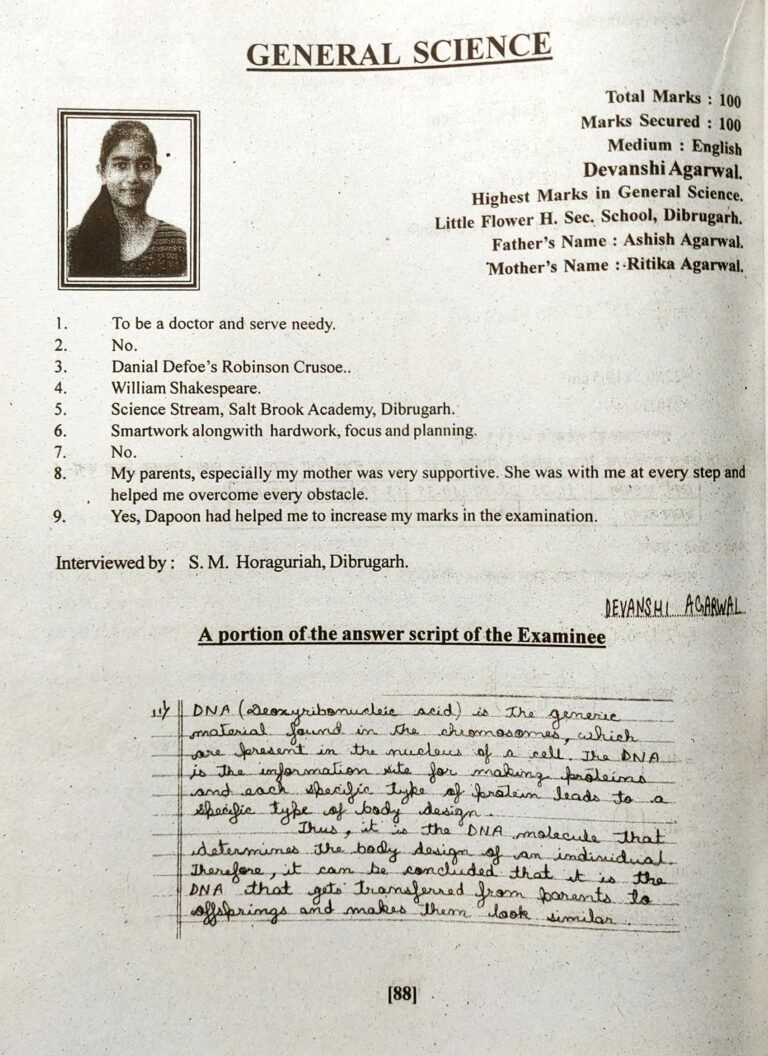 GENERAL SCIENCE
Total Marks : 100
Marks Secured : 100
Medium : English
Devanshi Agarwal.
Highest Marks in General Science.
Little Flower H. Sec. School, Dibrugarh.
Father's Name : Ashish Agarwal.
Mother's Name : Ritika Agarwal.
1. To be a doctor and serve needy.
2. No.
3. Danial Defoe's Robinson Crusoe..
4. William Shakespeare.
5. Science Stream, Salt Brook Academy, Dibrugarh.
6. Smartwork alongwith hardwork, focus and planning.
7. No.
8. My parents, especially my mother was very supportive. She was with me at every step and
helped me overcome every obstacle.
9. Yes, Dapoon had helped me to increase my marks in the examination.
Interviewed by : S. M. Horaguriah, Dibrugarh.
DEVANSHI AGARWAL
A portion of the answer script of the Examinee
DNA (Deoxyribonucleic acid) is the generic
material found in the chromosomes, which
are present in the nucleus of a cell. The DNA
is the information site for making proteins
and each specific type of protein leads to a
specific type of body design.
Thus, it is the DNA molecule that
determines the body design of an individual.
Therefore, it can be concluded that it is the
DNA that gets transferred from parents to
offsprings and makes them look similar.
[88]